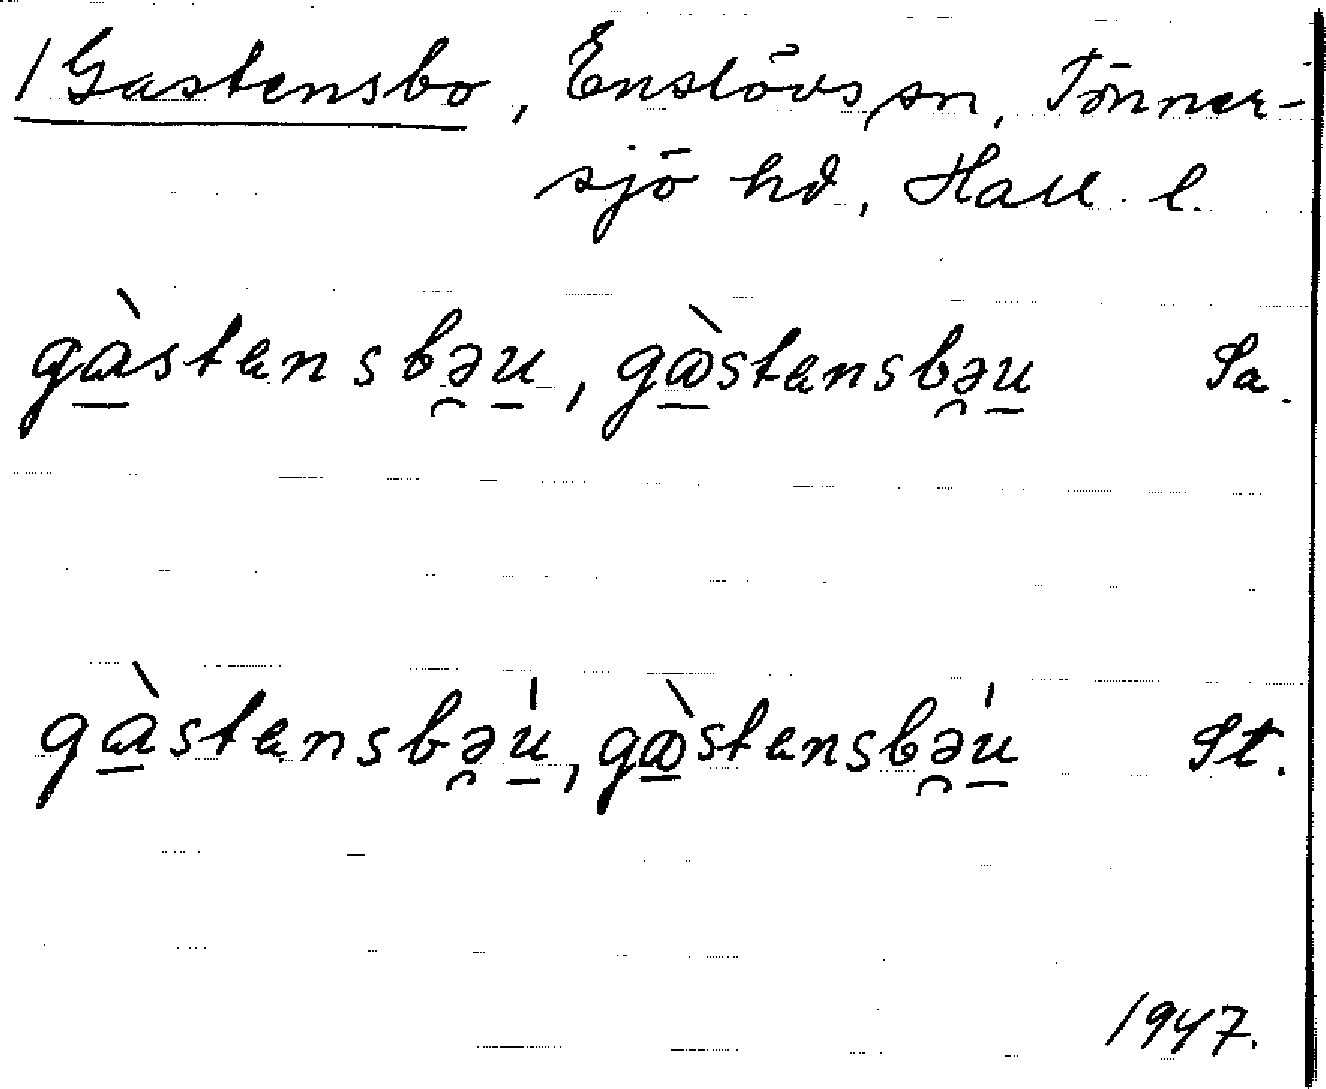 /Gastensbo, Enslövs sn, Tönner-
sjö hd, Hall. l.
gàstensbə̯u̲, gàstensbə̯u̲ Sa.
gàstensbə̯ú̲, gàstensbə̯ú̲ St.
1947.